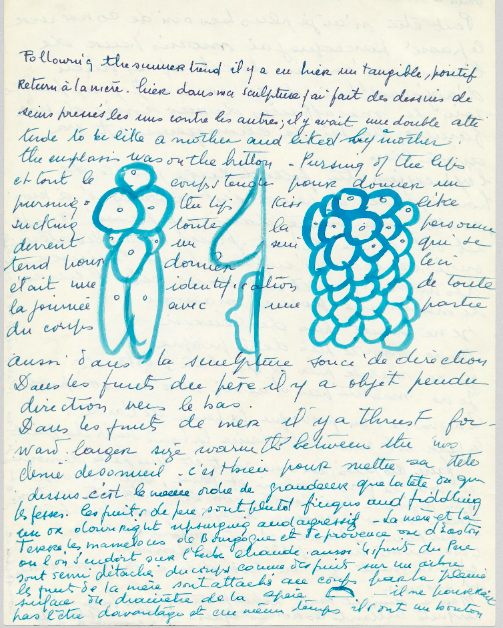 Following the summer trend il y a eu hier un tangible, positif
return à la mère. hier dans ma sculpture j'ai fait des dessins de
seins pressés les uns contre les autres; il y avait une double atti
tude to be like a mother and liked by mother.
the emphasis was on the button - Pursing of the lips
et tout le corps tendu pour donner un
pursing. the lip Kiss like
sucking toute la personne
devient un sein qui se
tend pour donner ceci
était une identification de toute
la journée avec une partie
du corps
aussi dans la sculpture souci de direction
Dans les fruits du père il y a objet pendu
direction vers le bas.
Dans les fruits de mer il y a thrust for-
ward. larger size warmth between the
sommeil - c'est bien pour mettre sa tête
dessus c'est le même ordre de grandeur que la tête ou que
les fesses. les fruits de père sont plutôt fingers and fiddling
un or downright upsurging and agressif - La mère et la
Terre, les mamelons de Bourgogne et de provence ou d'Easton
où l'on s'endort sur l'herbe chaude. aussi les fruits du Père
sont semi détachés du corps comme des fruits sur un arbre
les fruits de la mère sont attachés au corps par la pleine
surface ou diamètre de la sphère il ne pourrait
pas l'être davantage et en même temps ils ont un bouton